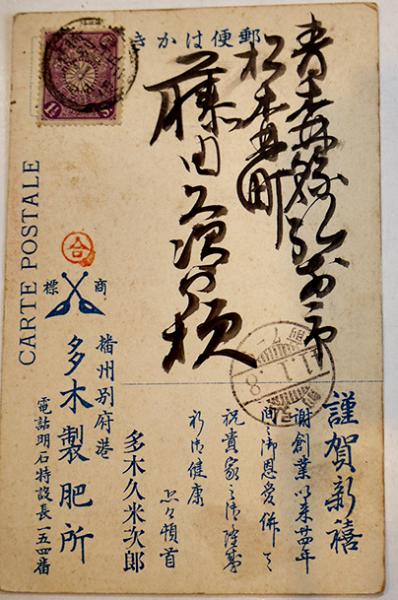 郵便はかき
青森縣弘前市
松森町
藤田久次郎様
CARTE POSTALE
合
商標
播州別府港
多木製肥所
電話明石特設長一五四番
多木久米次郎
謹賀新禧
謝創業以来廿四年
間之御恩愛併て
祝貴家之御隆盛
祈御健康
頓首